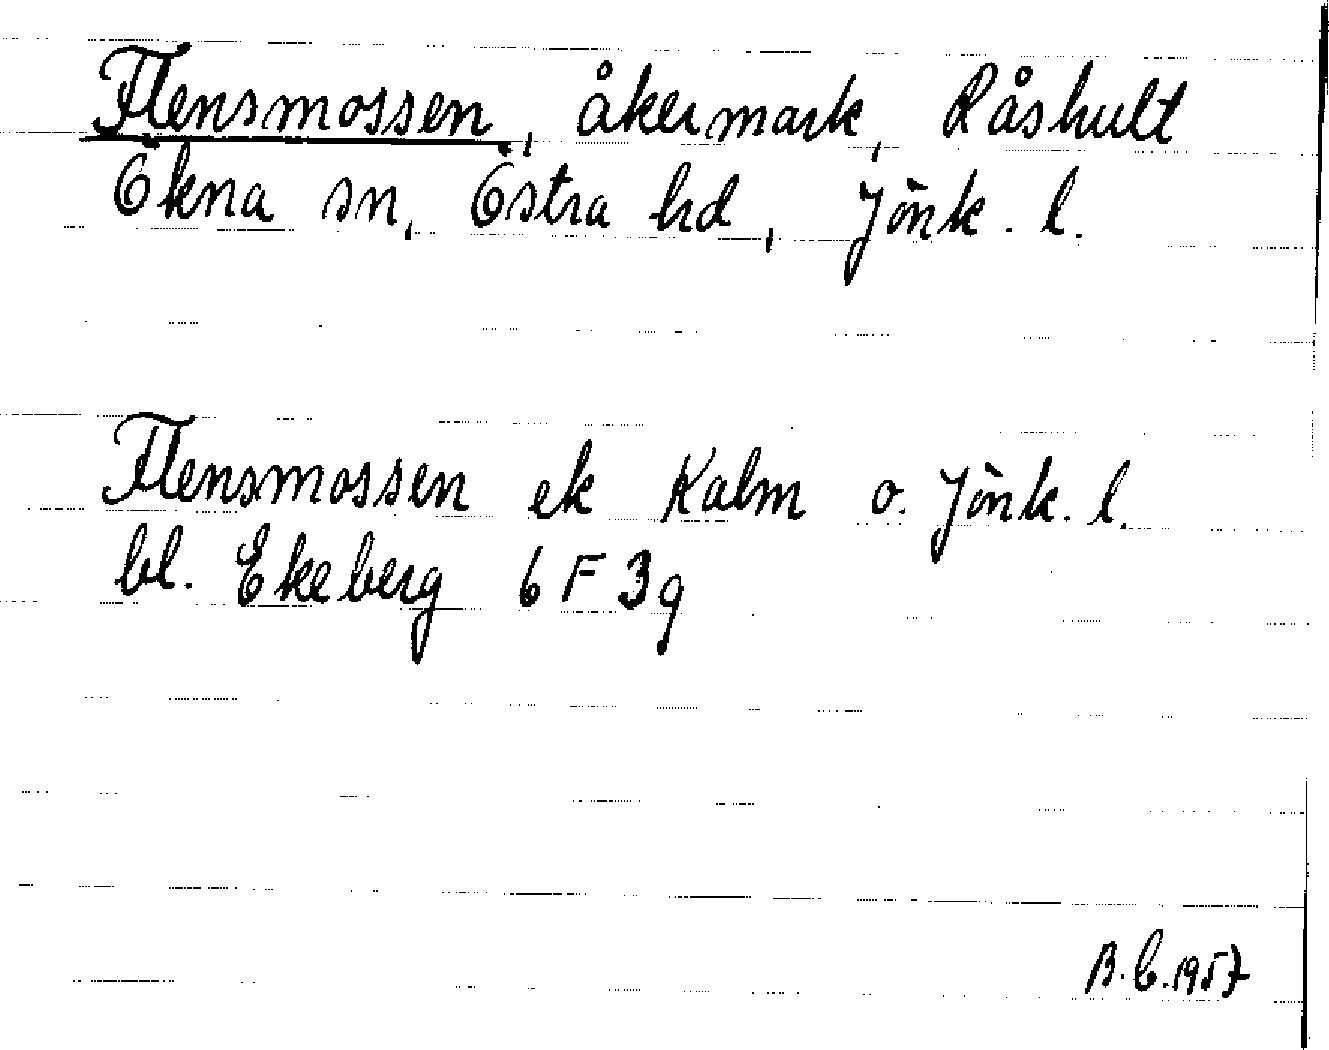 Flensmossen, åkermark, Råshult
Ökna sn, Östra hd, Jönk. l.
Flensmossen ek Kalm o. Jönk. l.
bl. Ekeberg 6 F 3g
B.C. 1957